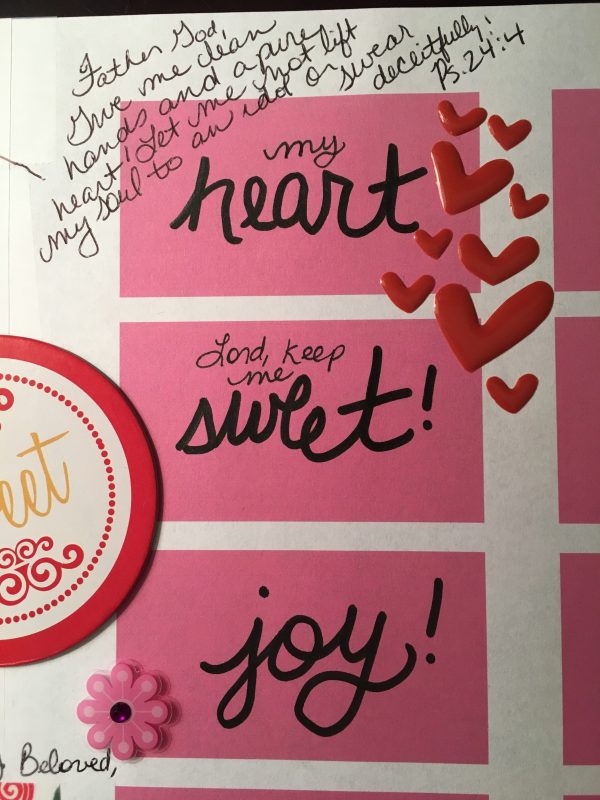 Father God,
Give me clean
hands and a pure
heart! Let me not lift
my soul to an idol or swear
deceitfully!
Ps. 24:4
my
heart
Lord, keep
me
sweet!
eet
joy!
Beloved,